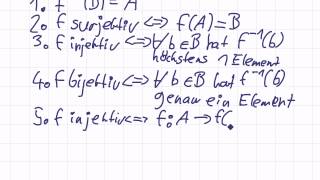 1. f⁻¹(B) = A
2. f surjektiv <=> f(A)=B
3. f injektiv <=> ∀ b∈B hat f⁻¹(b)
höchstens 1 Element
4. f bijektiv <=> ∀ b∈B hat f⁻¹(b)
genau ein Element
5. f injektiv <=> f: A → f(